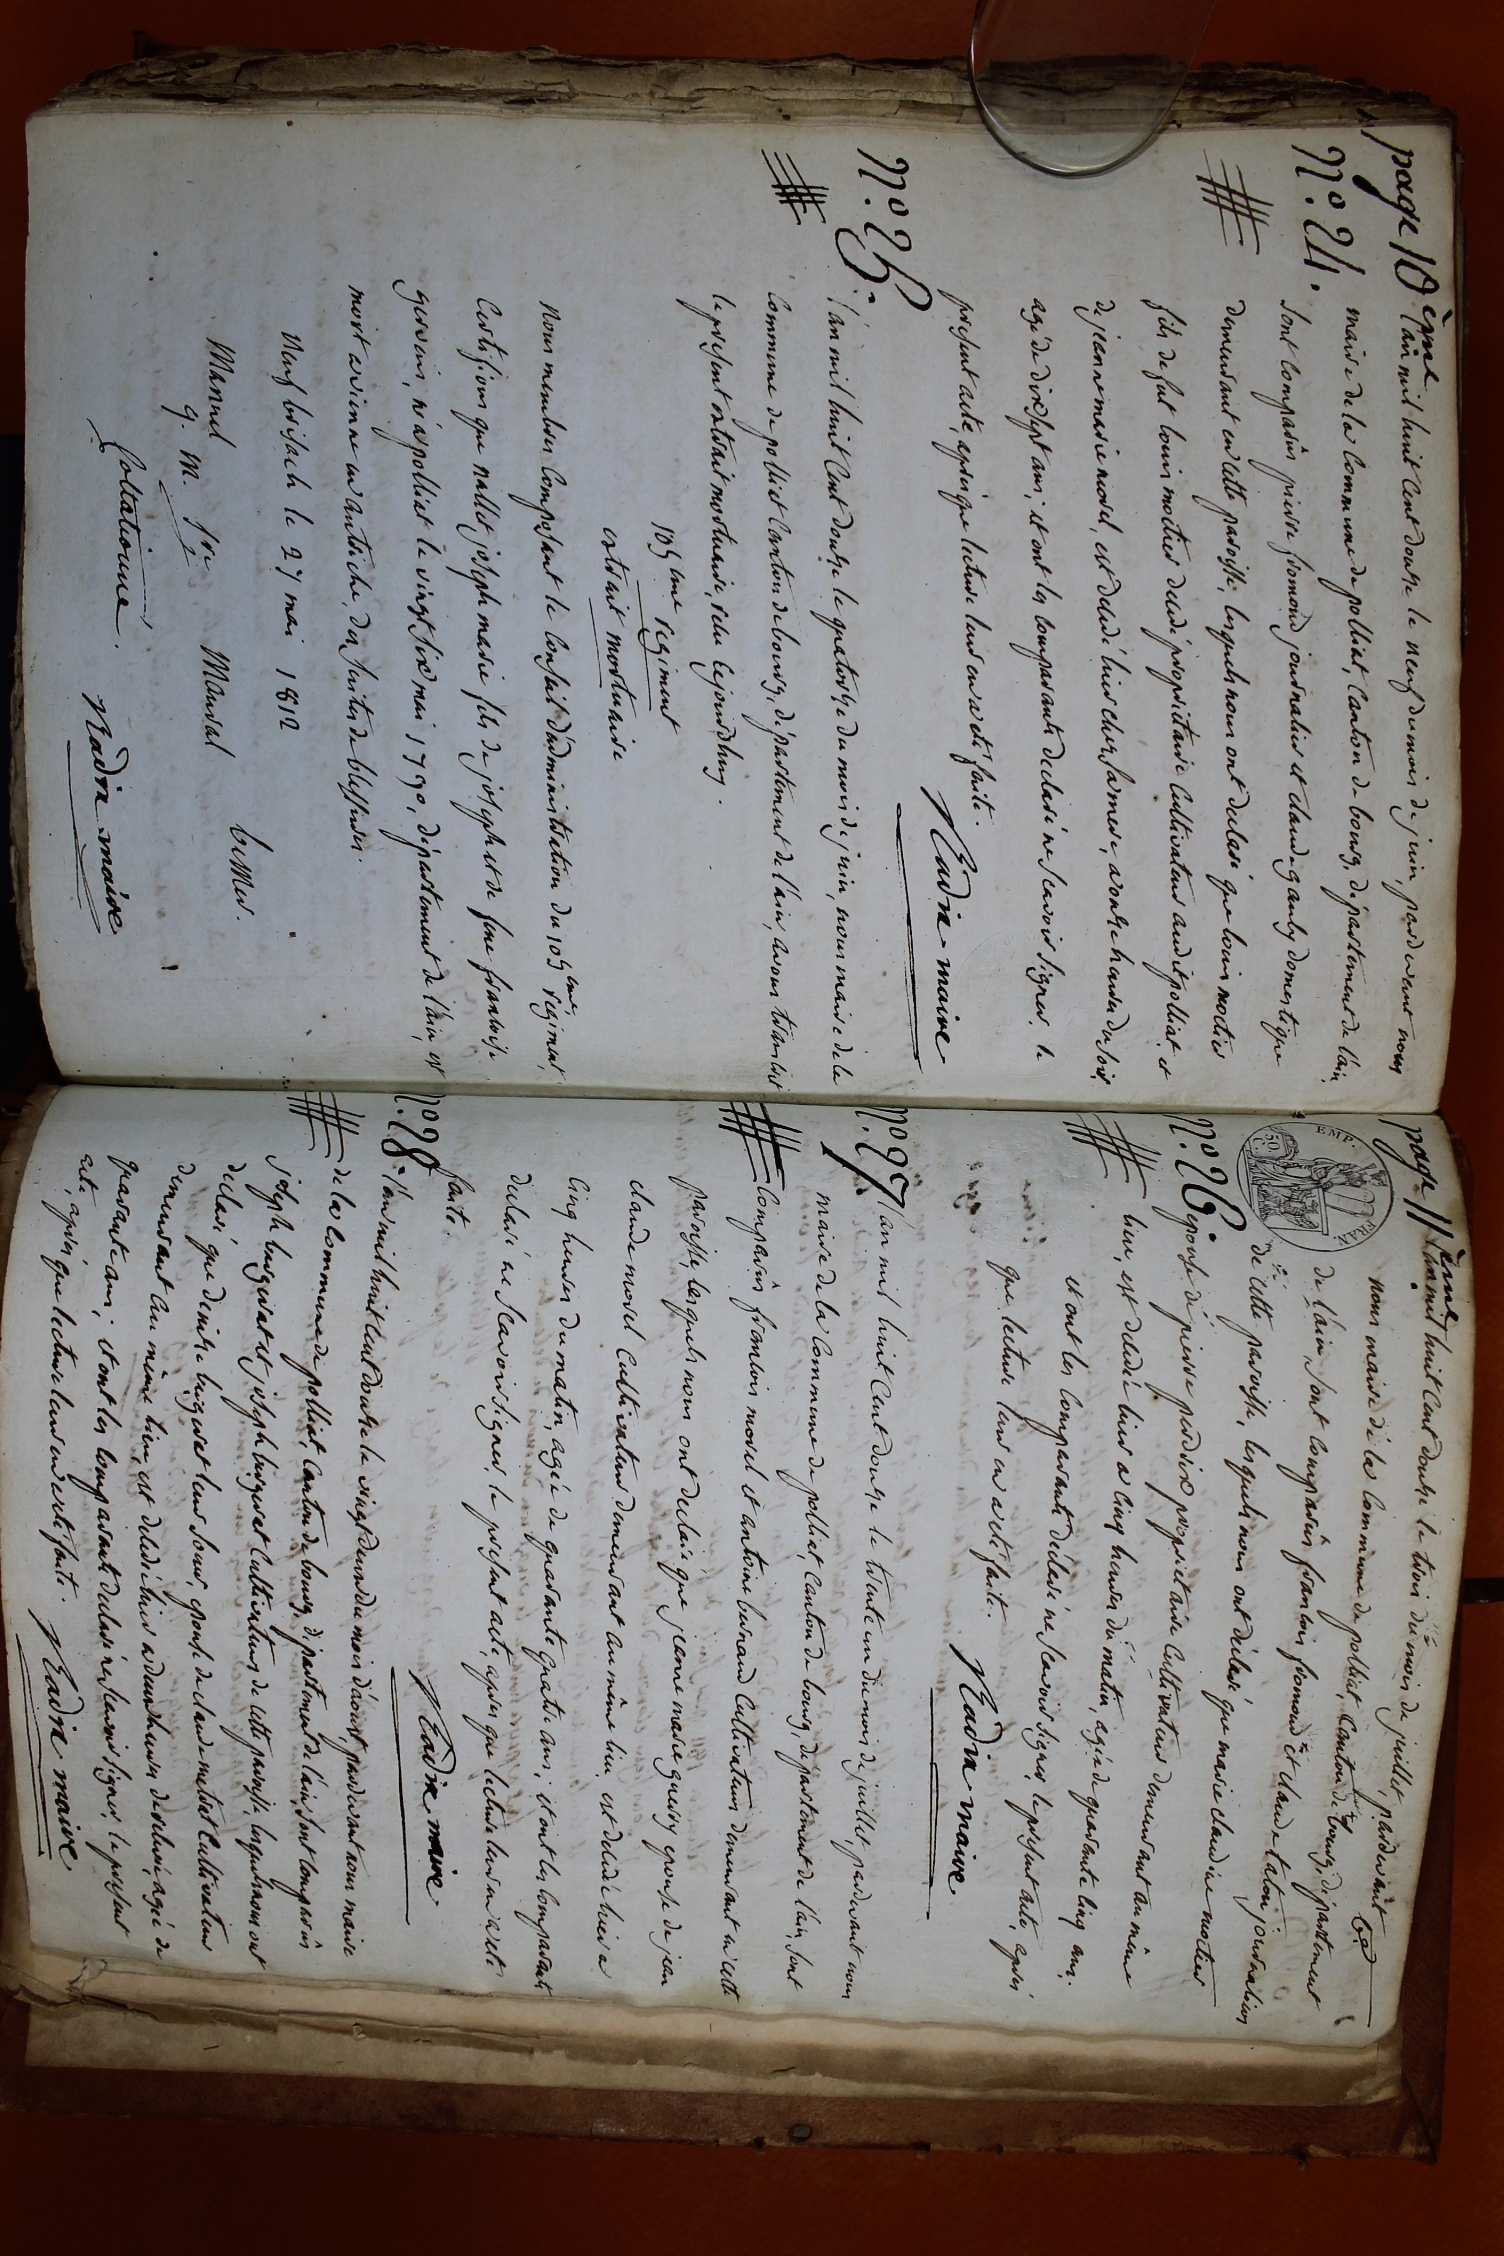 page 10ème
N.° 24.
l'an mil huit cent douze le neuf du mois de juin, pardevant nous
maire de la commune de polliat, canton de bourg, département de l'ain,
sont comparus pierre fromond journalier et claude gauly domestique
demeurant en cette paroisse, lesquels nous ont déclaré que louis moctier
fils de fut louis moctier décédé propriétaire cultivateur audit polliat et
de jeanne marie morel, est décédé hier chez sa mere, a onze heures du soir
agé de dix sept ans; et ont les comparants déclaré ne scavoir signer le
présent acte, après que lecture leur en a eté faite.
maire
N.° 25.
l'an mil huit cent douze le quatorze du mois de juin, nous maire de la
commune de polliat canton de bourg, département de l'ain, avons transcrit
le present extrait mortuaire, recu cejourdhuy.
105ème régiment
extrait mortuaire
Nous membres composant le conseil d'administration du 105ème régiment,
certifions que nallet joseph marie fils de joseph et de fene francoise
gervais, né a polliat le vingt six mai 1790, département de l'ain, est
mort a vienne en autriche, des suites de blessures.
Neuf brisach le 27 mai 1812
Manuel Mandal
q. M. tre
Collationné.
maire
page 11ème
EMP. FRAN.
50 C.
N.° 26.
l'an mil huit cent douze le trois du mois de juillet, pardevant
nous maire de la commune de polliat, canton de bourg, département
de l'ain, sont comparus francois fromond et claude tatou journalier
de cette paroisse, lesquels nous ont déclaré que marie claudine moctier
epouse de pierre perdrix propriétaire cultivateur demeurant au même
lieu, est décédée hier a cinq heures du matin, agée de quarante cinq ans;
et ont les comparants déclaré ne scavoir signer le présent acte, après
que lecture leur en a eté faite.
maire
N.° 27
l'an mil huit cent douze le trente un du mois de juillet, pardevant nous
maire de la commune de polliat, canton de bourg, département de l'ain, sont
comparus francois morel et antoine burnand cultivateurs demeurant en cette
paroisse, lesquels nous ont déclaré que jeanne marie guerry epouse de jean
claude morel cultivateur demeurant au même lieu est décédée hier a
cinq heures du matin, agée de quarante quatre ans; et ont les comparants
déclaré ne scavoir signer le présent acte, après que lecture leur en a eté
faite.
maire
N.° 28.
l'an mil huit cent douze le vingt deux du mois d'aout, pardevant nous maire
de la commune de polliat, canton de bourg, département de l'ain, sont comparus
joseph buiguerat et joseph buiguerat cultivateurs de cette paroisse, lesquels nous ont
déclaré que denise buiguerat leur soeur, epouse de claude cultivateur
demeurant au même lieu, est décédée hier a deux heures de relevée, agée de
quarante ans; et ont les comparants déclaré ne scavoir signer le présent
acte, après que lecture leur en a eté faite.
maire